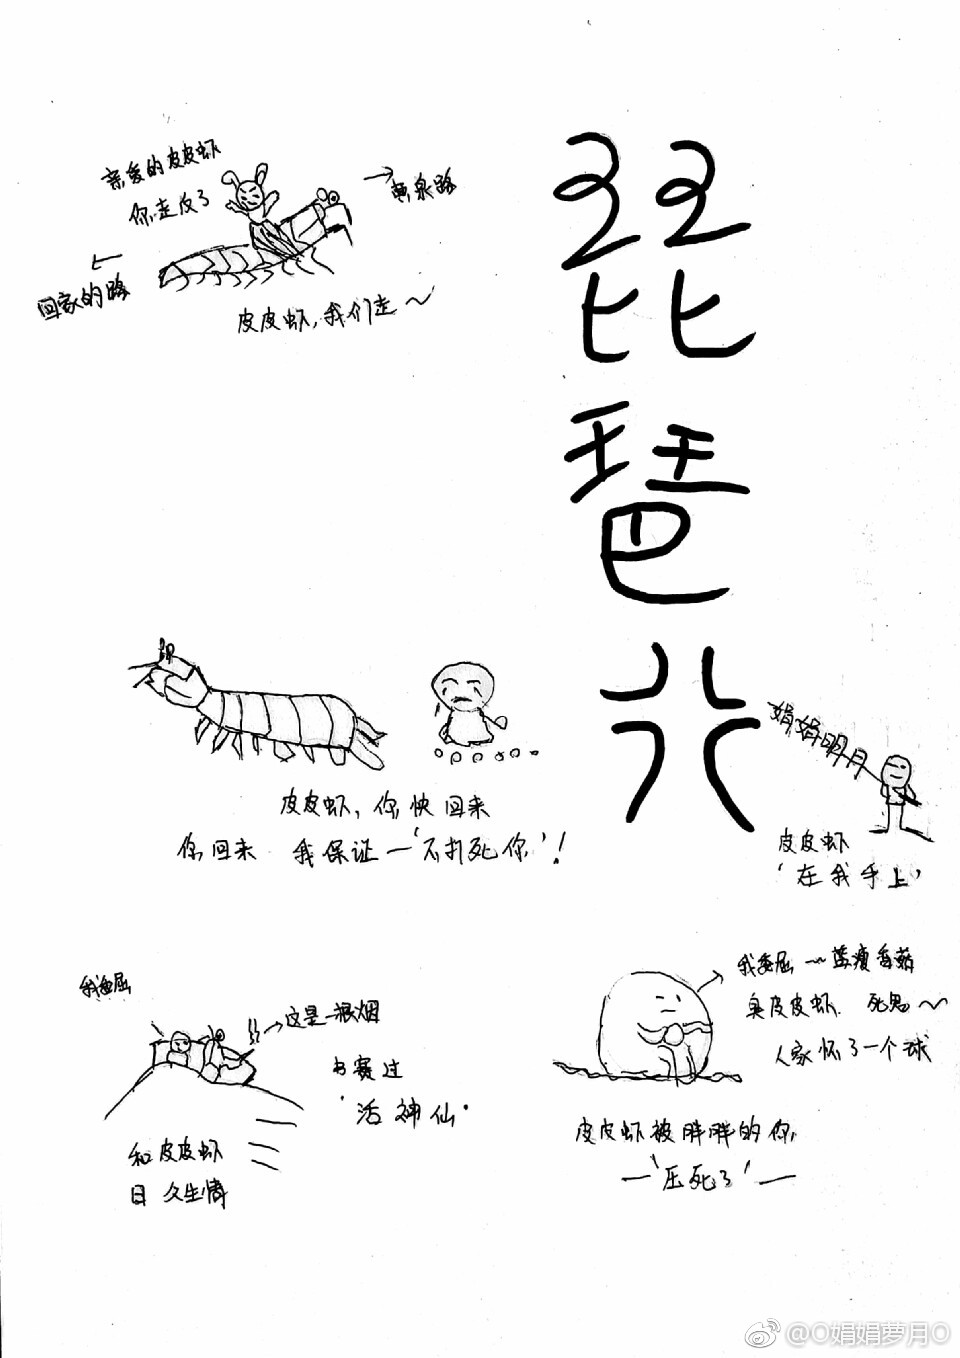 亲爱的皮皮虾
你走反了
黄泉路
回家的路
皮皮虾,我们走~
琵
琶
皮皮虾,你快回来
你回来 我保证一'不打死你'!
娟娟明月
皮皮虾
'在我手上'
我委屈
这是一根烟
'活神仙'
和皮皮虾
日久生情
我委屈~蓝瘦香菇
臭皮皮虾 死鬼~
人家怀了一个球
皮皮虾被胖胖的你
—'压死了'—
@O娟娟萝月O